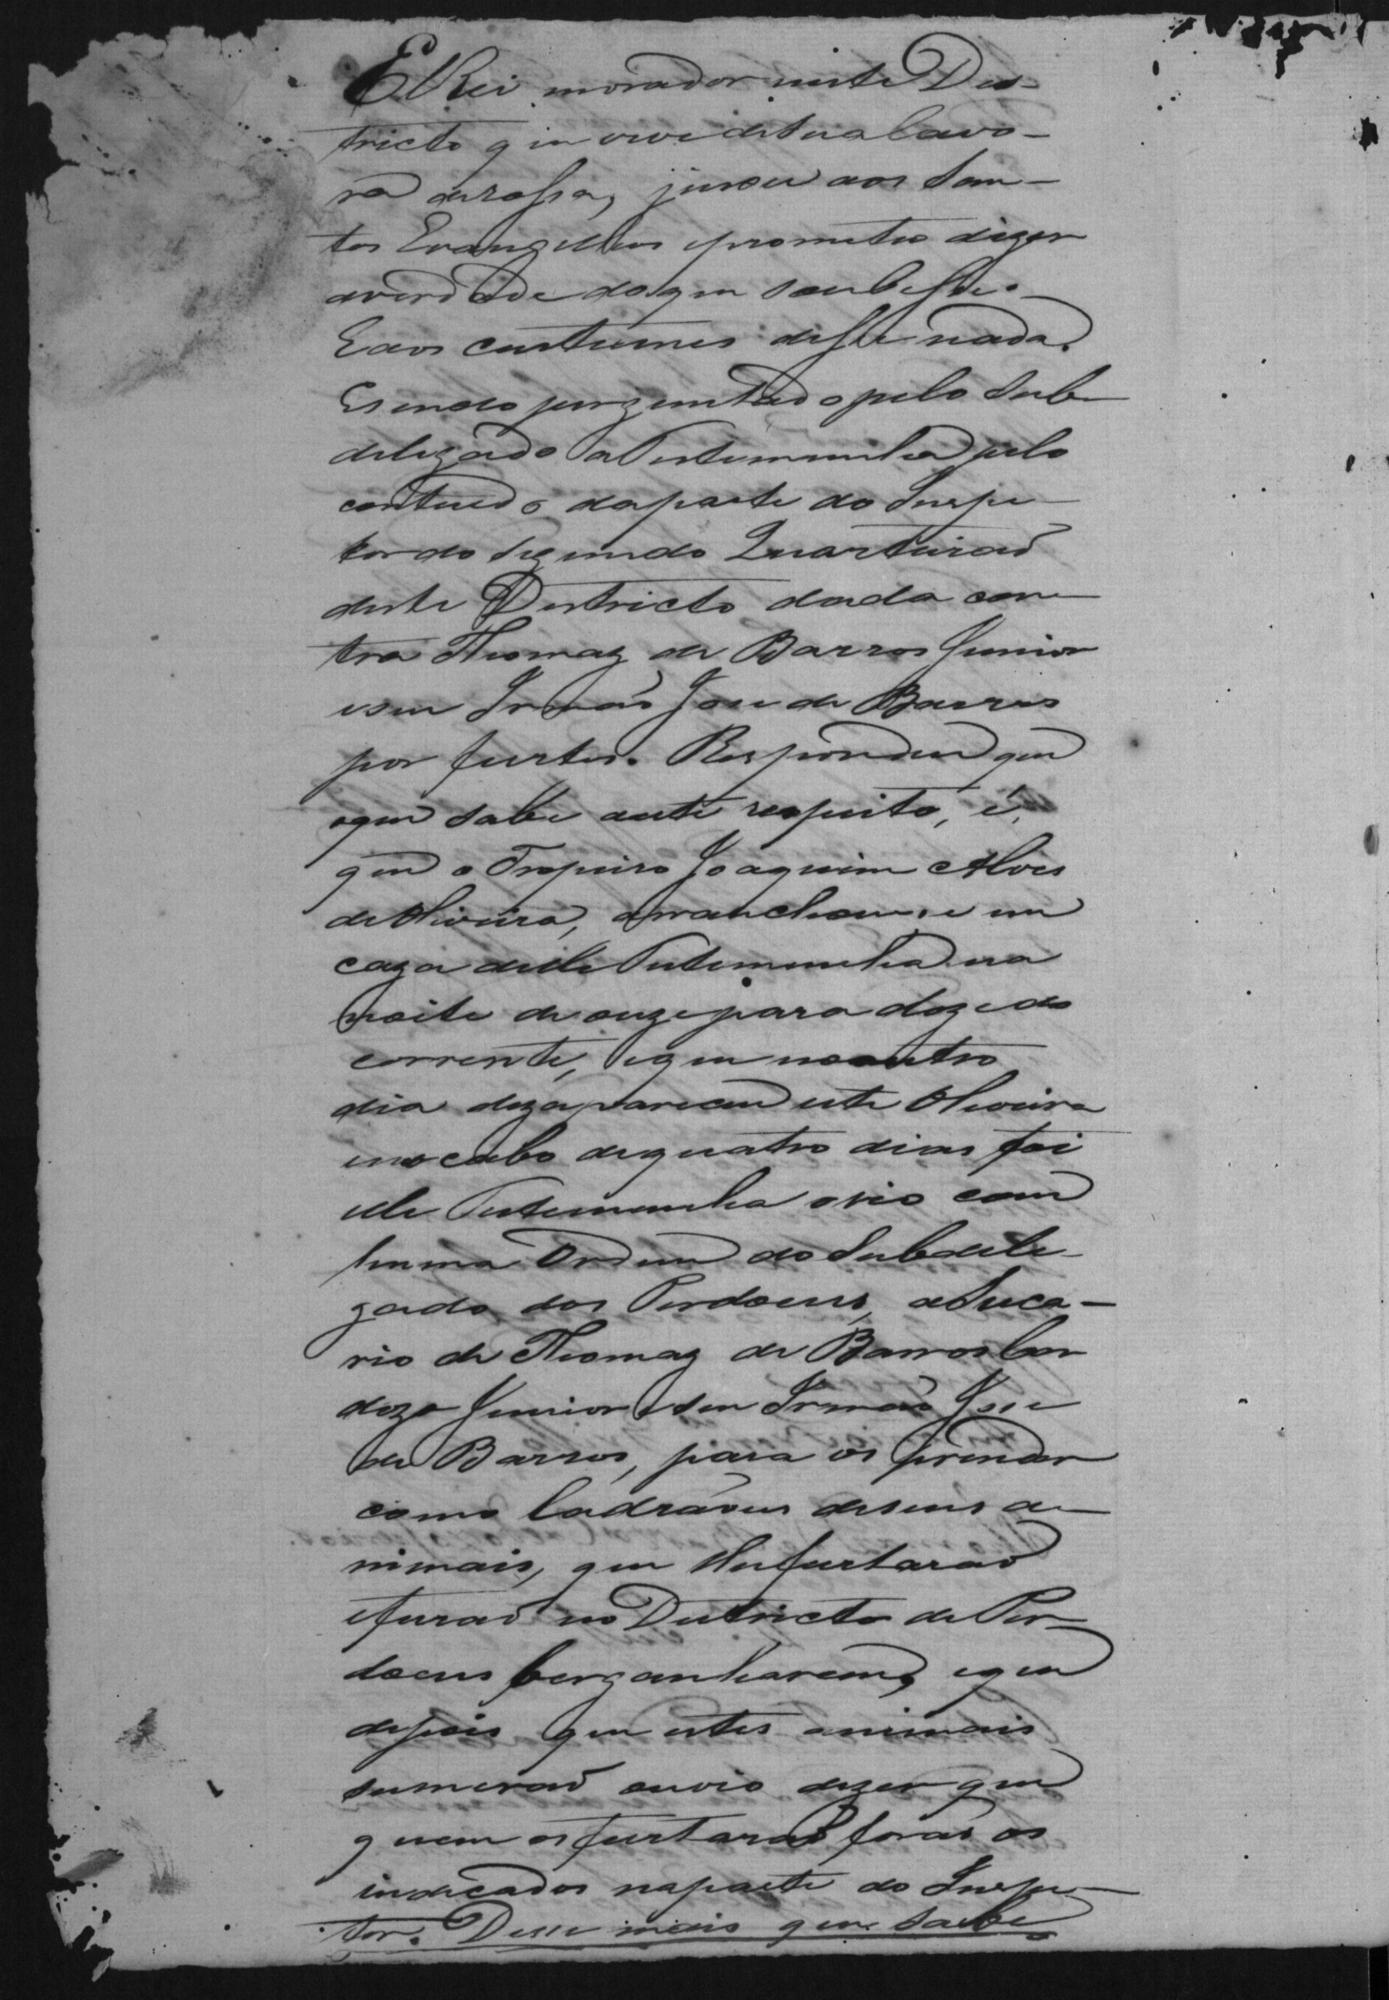 El Rei morador neste Des-
tricto que vive de sua lavo-
ra de rossa, jurou aos San-
tos Evangelhos eprometeo dizer
averdade doque soubesse.
Eaos custumes disse nada.
Esendo perguntado pelo Sub-
delegado a Testemunha pelo
contuedo daparte do Inspe-
tor do Segundo Quarteirão
deste Destricto dada con-
tra Thomaz de Barros Junior
eseu Irmão Jose de Barros
por furtos. Respondeu que
oque sabe aeste respeito, é,
que o Tropeiro Joaquim Alves
de Oliveira, arranchou-se em
caza delle Testemunha na
noite de onze para doze do
corrente, eque no outro
dia dezapareceu este Oliveira
eno cabo dequatro dias foi
elle Testemunha o vio com
huma Ordem do Subdele-
gado dos Perdoens, a Suca-
rio de Thomaz de Barros Car
dozo Junior e seu Irmão Jose
de Barros, para os prender
como ladrãoens deseus a-
nimais, que lhe furtarão
eforão no Destricto de Per-
doens berganharem, eque
depois que estes animais
sumerão ouvio dizer que
quem os furtarão forão os
indicados naparte do Inspe-
tor. Disse mais que sabe